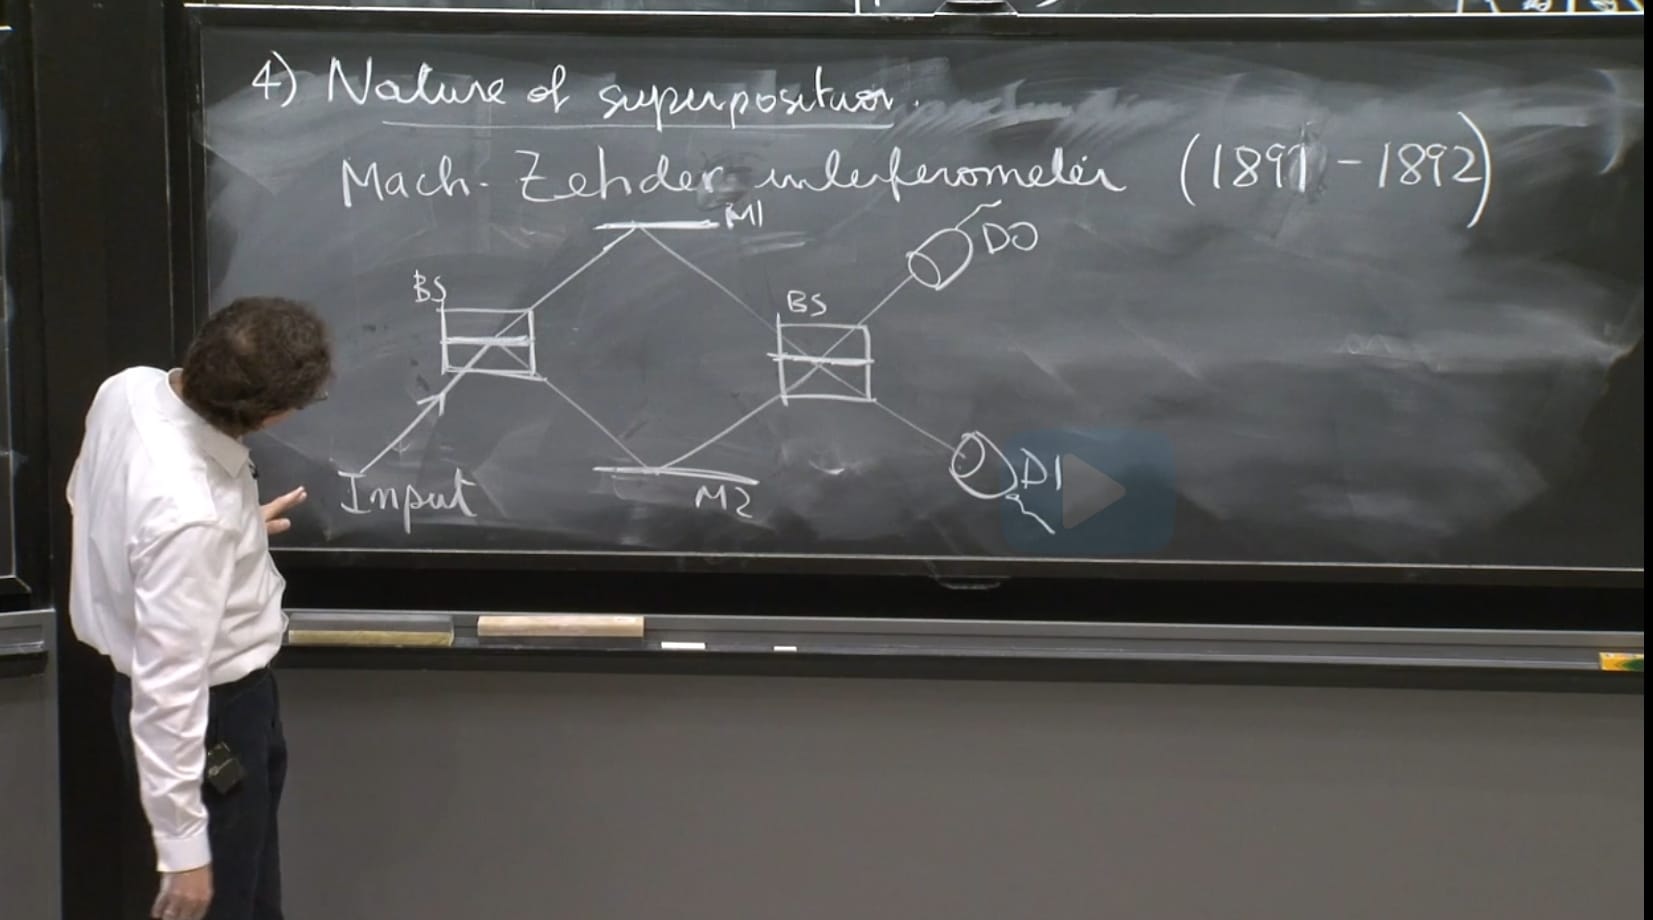 4) Nature of superposition.
Mach-Zehder interferometer (1891-1892)
M1
D0
BS
BS
D1
Input
M2